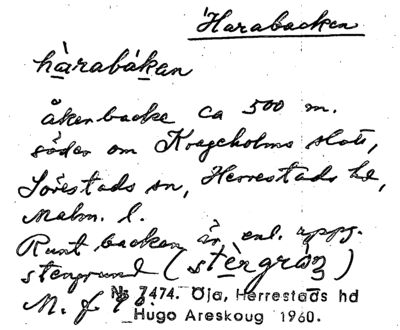 Harabacken
hàrabákan
åkerbacke ca 500 m.
söder om Krageholms slott,
Sövestads sn, Herrestads hd,
Malm. l.
Runt backen är enl. uppg.
stengrund (stèrgrōn)
M. f.
No 7474. Öja, Herrestads hd
Hugo Areskoug 1960.